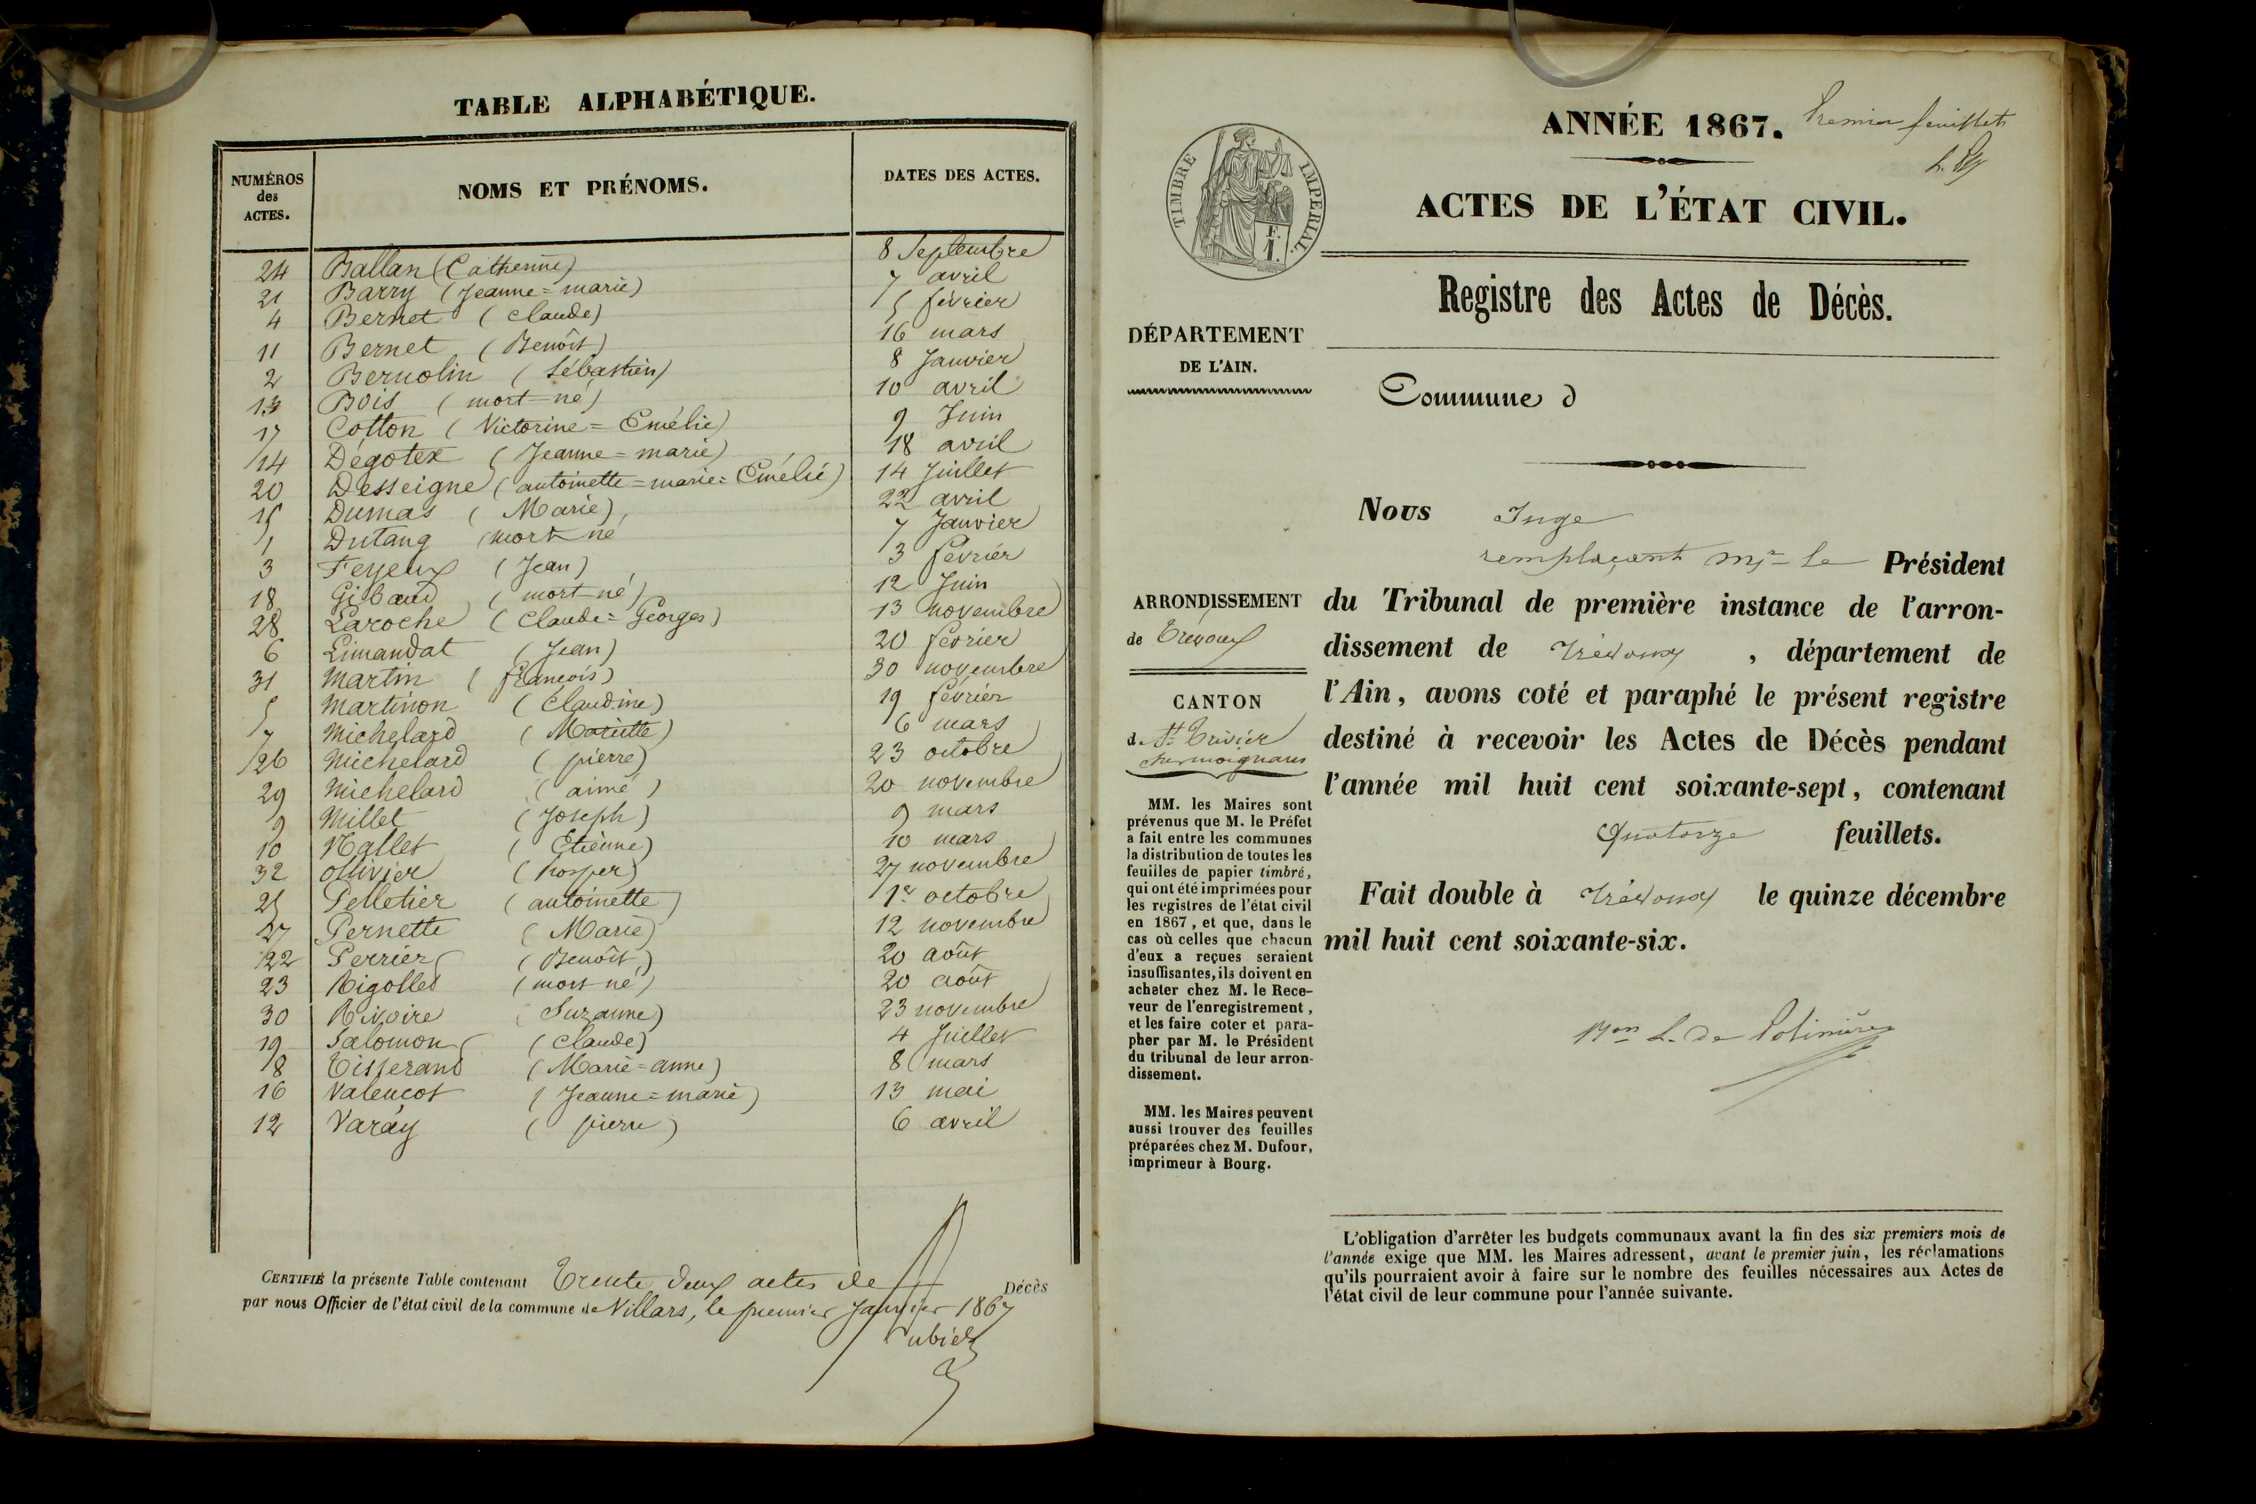 TABLE ALPHABÉTIQUE.
NUMÉROS des ACTES. NOMS ET PRÉNOMS. DATES DES ACTES.
24 Ballan (Catherine) 8 Septembre
21 Barry (Jeanne=marie) 7 avril
4 Bernet (Claude) 5 février
11 Bernet (Benoît) 16 mars
2 Bernolin (Sébastien) 8 Janvier
13 Bois (mort-né) 10 avril
17 Cotton (Victorine=Emélie) 9 Juin
14 Dégotex (Jeanne=marie) 18 avril
20 Desseigne (antoinette=marie=Emélie) 14 Juillet
15 Dumas (Marie) 22 avril
1 Dutang (mort-né 7 Janvier
3 Feyeux (Jean) 3 février
18 Gibaud (mort-né) 12 Juin
28 Laroche (Claude=Georges) 13 novembre
6 Limandat (Jean) 20 février
31 Martin (françois) 30 novembre
5 Martinon (Claudine) 19 février
7 Michelard (Mariette) 6 mars
26 Michelard (pierre) 23 octobre
29 Michelard (aimé) 20 novembre
9 Millet (Joseph) 9 mars
10 Nallet (Etienne) 10 mars
32 ollivier (Prosper) 27 novembre
25 Pelletier (antoinette) 1er octobre
27 Pernette (Marie) 12 novembre
22 Perrier (Benoît) 20 août
23 Rigollet (mort-né) 20 août
30 Rivoire (Suzanne) 23 novembre
19 Salomon (Claude) 4 Juillet
8 Tisserand (Marie=anne) 8 mars
16 Valencot (Jeanne=marie) 13 mai
12 Varay (pierre) 6 avril
CERTIFIÉ la présente Table contenant Trente deux actes de Décès
par nous Officier de l'état civil de la commune de Villars, le premier Janvier 1867
ANNÉE 1867. Premier feuillet
ACTES DE L'ÉTAT CIVIL.
TIMBRE IMPERIAL.
Registre des Actes de Décès.
DÉPARTEMENT
DE L'AIN.
Commune d
ARRONDISSEMENT
de Trévoux
CANTON
de St Trivier
sur moignans
MM. les Maires sont
prévenus que M. le Préfet
a fait entre les communes
la distribution de toutes les
feuilles de papier timbré,
qui ont été imprimées pour
les registres de l'état civil
en 1867, et que, dans le
cas où celles que chacun
d'eux a reçues seraient
insuffisantes, ils doivent en
acheter chez M. le Rece-
veur de l'enregistrement,
et les faire coter et para-
pher par M. le Président
du tribunal de leur arron-
dissement.
MM. les Maires peuvent
aussi trouver des feuilles
préparées chez M. Dufour,
imprimeur à Bourg.
Nous Juge
remplaçant Mr le Président
du Tribunal de première instance de l'arron-
dissement de Trévoux, département de
l'Ain, avons coté et paraphé le présent registre
destiné à recevoir les Actes de Décès pendant
l'année mil huit cent soixante-sept, contenant
Quatorze feuillets.
Fait double à Trévoux le quinze décembre
mil huit cent soixante-six.
Bon L. de Polinière
L'obligation d'arrêter les budgets communaux avant la fin des six premiers mois de
l'année exige que MM. les Maires adressent, avant le premier juin, les réclamations
qu'ils pourraient avoir à faire sur le nombre des feuilles nécessaires aux Actes de
l'état civil de leur commune pour l'année suivante.